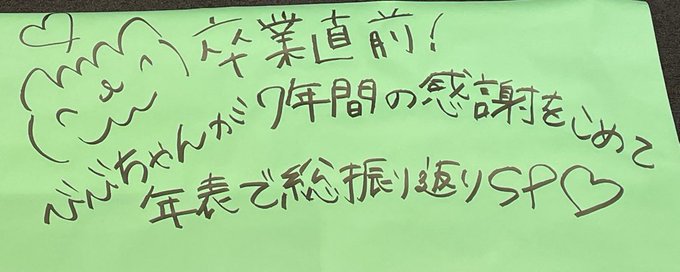 卒業直前!
びびちゃんが7年間の感謝をこめて
年表で総振り返りSP♡